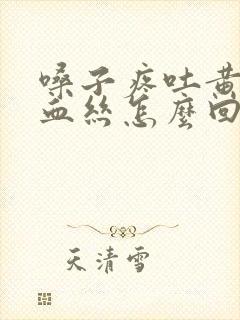 嗓子疼吐黄
血丝怎麼回
天清雪